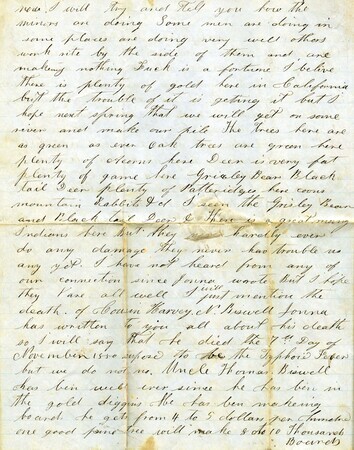 now I will try and tell you how the
miners are doing Some men are doing in
some places are doing very well others
work rite by the side of them and are
making nothing Luck is a fortune I belive
there is plenty of gold here in California
but the trouble of it is geting it but I
hope next spring that we will get on some
river and make our pile The trees here are
as green as ever Oak trees are green here
plenty of Acorns here Deer is very fat
plenty of game here Grizley Bear Black
tail Deer plenty of Patteridges here
mountain Rabbits I seen the Grisley Bear
and Black tail Deer There is a great many
Indians here but they hardly ever
do any damage they never had trouble us
any yet. I have not heard from any of
our connection since wrote but I hope
they are all well I will just mention the
death of Cousin Harvey Biswell
has written to you all about his death
so I will say that he died the 7th Day of
November to be the Typhore Fever
but we do not Uncle Thomas Biswell
has ben well ever since he has ben in
the gold diggins He has ben makeing
boards he gets from 4 to 5 dollars per
one good pine tree will make 8 to 10 Thousands
Boards